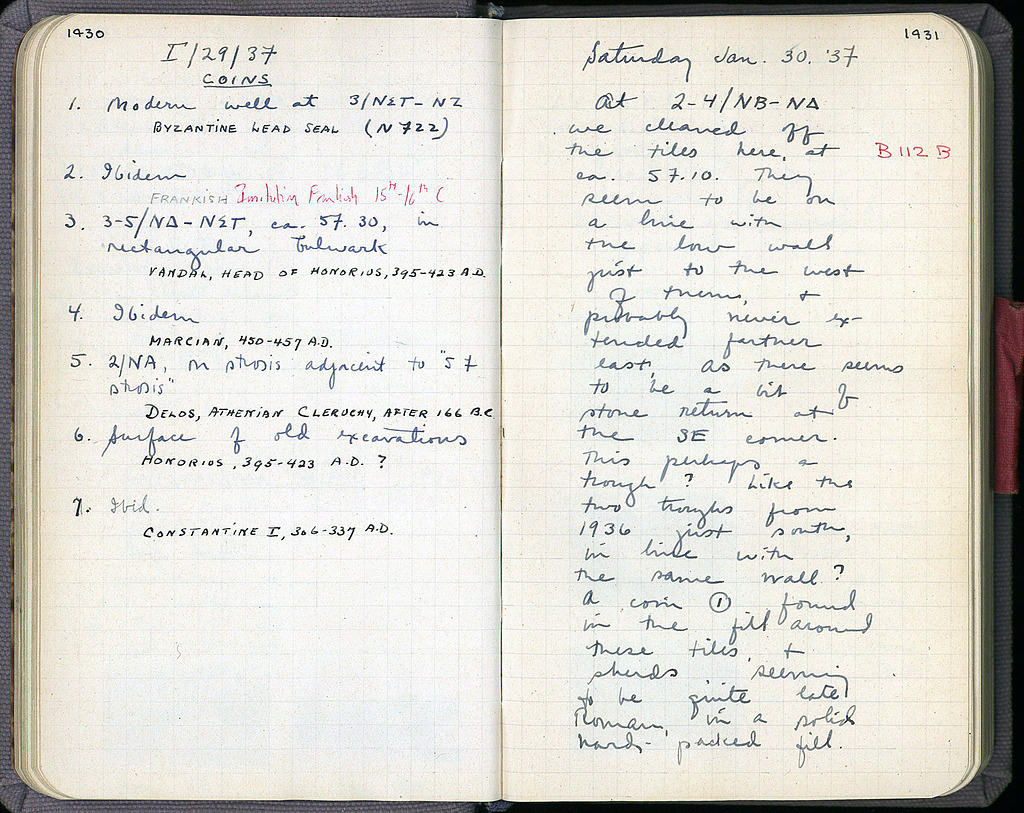 1430
I/29/37
COINS
1. Modern well at 3/ΝΣΤ-ΝΖ
BYZANTINE LEAD SEAL (N722)
2. Ibidem
FRANKISH Imitation Frankish 15th-16th C
3. 3-5/ΝΔ-ΝΣΤ, ca. 57.30, in
rectangular bulwark
VANDAL, HEAD OF HONORIUS, 395-423 A.D.
4. Ibidem
MARCIAN, 450-457 A.D.
5. 2/ΝΑ, on strosis adjacent to "57
strosis"
DELOS, ATHENIAN CLERUCHY, AFTER 166 B.C.
6. Surface of old excavations
HONORIUS, 395-423 A.D. ?
7. Ibid.
CONSTANTINE I, 306-337 A.D.
1431
Saturday Jan. 30. '37
At 2-4/ΝΒ-ΝΔ
we cleaned off
the tiles here, at B 112 B
ca. 57.10. They
seem to be on
a line with
the low wall
just to the west
of them, +
probably never ex-
tended farther
east, as there seems
to be a bit of
stone return at
the SE corner.
This perhaps a
trough? Like the
two troughs from
1936 just south,
in line with
the same wall?
A coin ① found
in the fill around
these tiles, +
sherds seeming
to be quite late
Roman, in a solid
hard-packed fill.